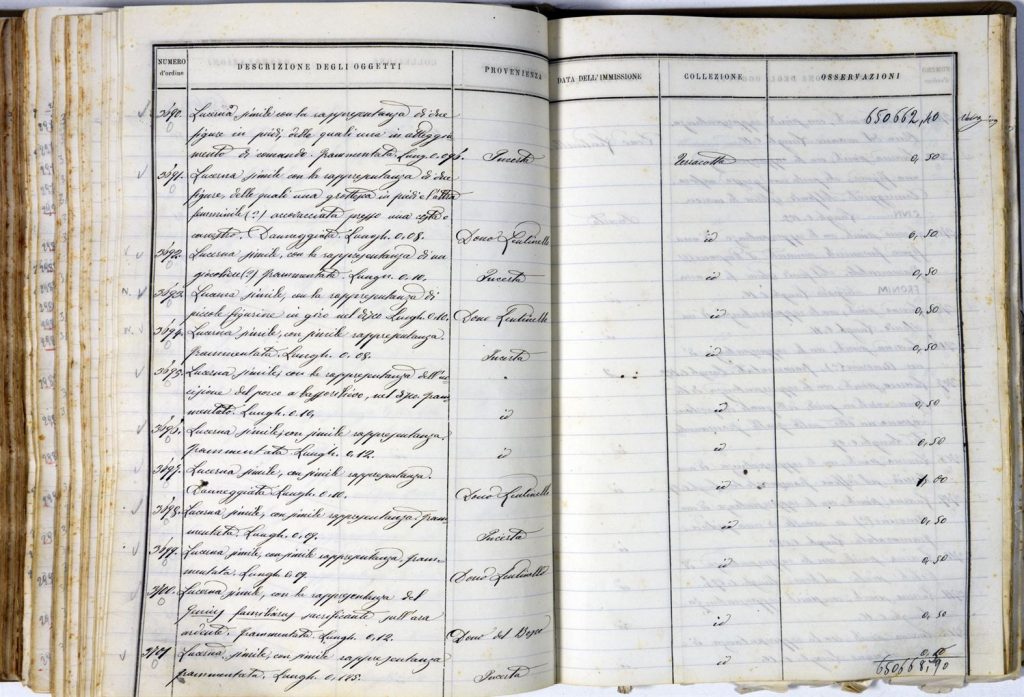 NUMERO d'ordine DESCRIZIONE DEGLI OGGETTI PROVENIENZA DATA DELL'IMMISSIONE COLLEZIONE OSSERVAZIONI
650662,40
3690. Lucerna simile con la rappresentanza di due
figure in piedi, delle quali una in atteggia
mento di comando. frammentata. Lung. 0.096. Incerta Terracotta 0,50
3691. Lucerna simile con la rappresentanza di due
figure, delle quali una grottesca in piedi e l'altra
femminile (?) accovacciata presso una cesta o
canestro. Danneggiata. Lungh. 0.08. Dono Lentinello id 0,50
3692. Lucerna simile, con la rappresentanza di un
giocoliere (?) frammentata. Lungh. 0.10. Incerta id 0,50
3693. Lucerna simile, con la rappresentanza di
piccole figurine in giro nel disco. Lungh. 0.10. Dono Lentinello id 0,50
3694. Lucerna simile, con simile rappresentanza.
frammentata. Lungh. 0.08. Incerta id 0,50
3695. Lucerna simile, con la rappresentanza dell'uc
cisione del porco a bassorilievo, nel disco. fram
mentata. Lungh. 0.10. id id 0,50
Lucerna simile, con simile rappresentanza.
frammentata. Lungh. 0.12. id id 0,50
3697. Lucerna simile, con simile rappresentanza.
Danneggiata. Lungh. 0.10. Dono Lentinello id 1,00
3698. Lucerna simile, con simile rappresentanza. fram
mentata. Lungh. 0.09. Incerta id 0,50
3699. Lucerna simile, con simile rappresentanza. fram
mentata. Lungh. 0.09. Dono Lentinello id 0,50
Lucerna simile, con la rappresentanza del
Genius familiaris sacrificante sull'ara
ardente. frammentata. Lungh. 0.12. Dono del id 0,50
Lucerna simile, con simile rappresentanza
frammentata. Lungh. 0.105. Incerta id 0,50
650668,40